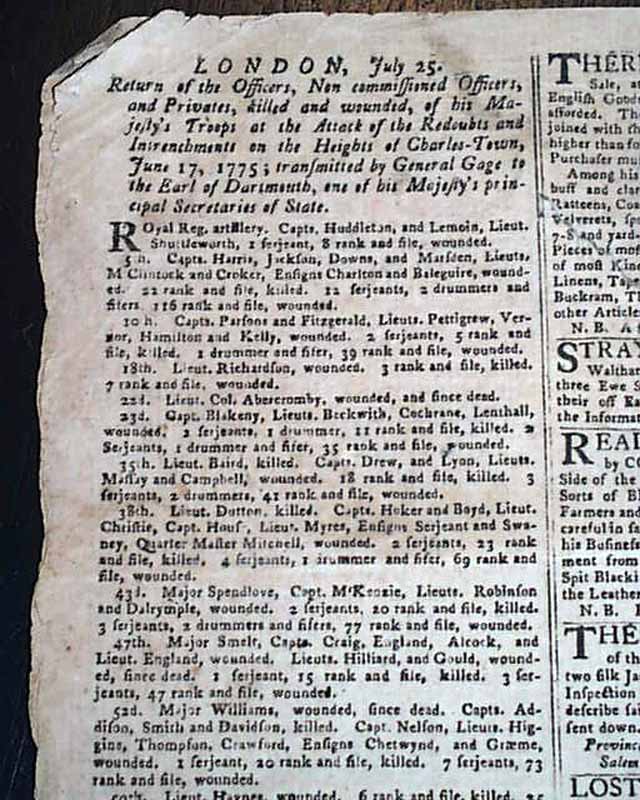 LONDON, July 25.
Return of the Officers, Non commissioned Officers,
and Privates, killed and wounded, of his Ma-
jesty's Troops at the Attack of the Redoubts and
Intrenchments on the Heights of Charles-Town,
June 17, 1775; transmitted by General Gage to
the Earl of Dartmouth, one of his Majesty's prin-
cipal Secretaries of State.
ROyal Reg. artillery. Capts. Huddleton, and Lemoin, Lieut.
Shuttleworth, 1 serjeant, 8 rank and file, wounded.
5th. Capts. Harris, Jackson, Downs, and Marsden, Lieuts.
M'Clintock and Croker, Ensigns Charlton and Baleguire, wound-
ed. 22 rank and file, killed. 12 serjeants, 2 drummers and
fifers 116 rank and file, wounded.
10th. Capts. Parsons and Fitzgerald, Lieuts. Pettigrew, Ver-
nor, Hamilton and Kelly, wounded. 2 serjeants, 5 rank and
file, killed. 1 drummer and fifer, 39 rank and file, wounded.
18th. Lieut. Richardson, wounded. 3 rank and file, killed.
7 rank and file, wounded.
22d. Lieut. Col. Abercromby, wounded, and since dead.
23d. Capt. Blakeny, Lieuts. Beckwith, Cochrane, Lenthall,
wounded. 2 serjeants, 1 drummer, 11 rank and file, killed. 2
Serjeants, 1 drummer and fifer, 35 rank and file, wounded.
35th. Lieut. Baird, killed. Capts. Drew, and Lyon, Lieuts.
Massay and Campbell, wounded. 18 rank and file, killed. 3
serjeants, 2 drummers, 41 rank and file, wounded.
38th. Lieut. Dutton, killed. Capts. Hoker and Boyd, Lieut.
Christie, Capt. House, Lieut. Myres, Ensigns Serjeant and Swa-
ney, Quarter Master Mitchell, wounded. 2 serjeants, 23 rank
and file, killed. 4 serjeants, 1 drummer and fifer, 69 rank and
file, wounded.
43d. Major Spendlove, Capt. M'Kenzie, Lieuts. Robinson
and Dalrymple, wounded. 2 serjeants, 20 rank and file, killed.
3 serjeants, 2 drummers and fifers, 77 rank and file, wounded.
47th. Major Smelt, Capts. Craig, England, Alcock, and
Lieut. England, wounded. Lieuts. Hilliard, and Gould, wound-
ed, since dead. 1 serjeant, 15 rank and file, killed. 3 ser-
jeants, 47 rank and file, wounded.
52d. Major Williams, wounded, since dead. Capts. Ad-
dison, Smith and Davidson, killed. Capt. Nelson, Lieuts. Hig-
gins, Thompson, Crawford, Ensigns Chetwynd, and Græme,
wounded. 1 serjeant, 20 rank and file, killed. 7 serjeants, 73
rank and file, wounded.
Lieut. Haynes, wounded. 6 rank and file, killed.
THER
Sale, at
English Good
afforded. The
joined with
higher than
Purchaser
Among his
buff and
Ratteens,
Velverets,
7-8 and yard-
Pieces of most
of most Kind
Linens, Tape
Buckram,
other Article
N. B. A
STRAY
Walthar
three Ewe S
their off Ea
the Informat
READ
by CO
Side of the
Sorts of Bl
Farmers and
careful in
his Business
ment from
Spit Blacki
the Leather
N. B.
THE
of the
two silk
Inspection
describe
sent down.
Provinc
Salem
LOST